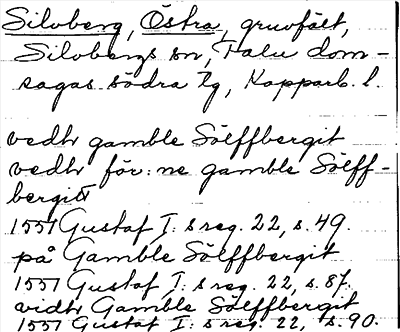 Silvberg, Östra, gruvfält,
Silvbergs sn, Falu dom-
sagas södra tg, Kopparb. l.
vedh gamble Sölffbergit
vedh för:ne gamble Sölff-
bergitt
1551 Gustaf I:s reg. 22, s. 49.
på Gamble Sölffbergit
1551 Gustaf I:s reg. 22, s. 87.
vidh Gamble Sölffbergit
1551 Gustaf I:s reg. 22, s. 90.